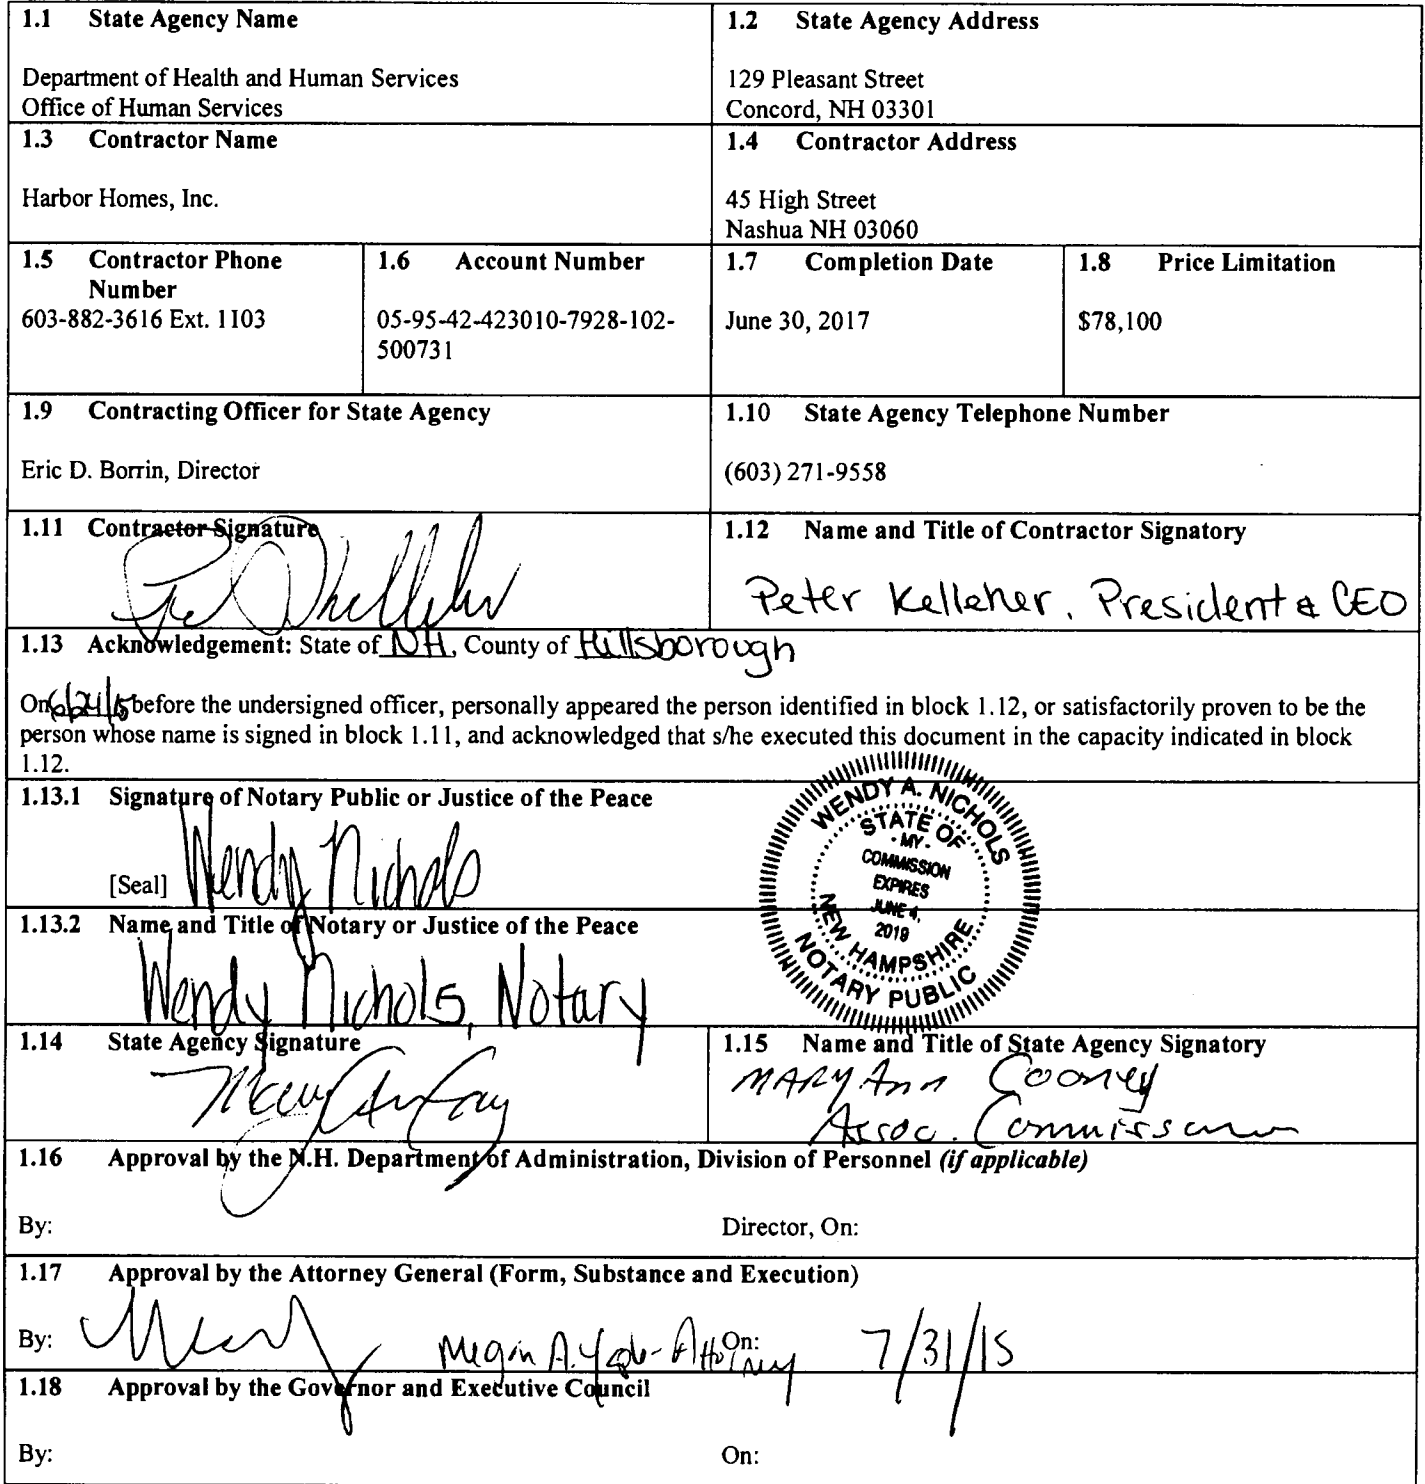 1.1 State Agency Name
Department of Health and Human Services
Office of Human Services
1.2 State Agency Address
129 Pleasant Street
Concord, NH 03301
1.3 Contractor Name
Harbor Homes, Inc.
1.4 Contractor Address
45 High Street
Nashua NH 03060
1.5 Contractor Phone
Number
603-882-3616 Ext. 1103
1.6 Account Number
05-95-42-423010-7928-102-
500731
1.7 Completion Date
June 30, 2017
1.8 Price Limitation
$78,100
1.9 Contracting Officer for State Agency
Eric D. Borrin, Director
1.10 State Agency Telephone Number
(603) 271-9558
1.11 Contractor Signature
1.12 Name and Title of Contractor Signatory
Peter Kelleher, President & CEO
1.13 Acknowledgement: State of NH, County of Hillsborough
On 6/24/15 before the undersigned officer, personally appeared the person identified in block 1.12, or satisfactorily proven to be the
person whose name is signed in block 1.11, and acknowledged that s/he executed this document in the capacity indicated in block
1.12.
1.13.1 Signature of Notary Public or Justice of the Peace
Wendy Nichols
[Seal]
WENDY A. NICHOLS
STATE OF
- MY -
COMMISSION
EXPIRES
JUNE 4,
2019
NEW HAMPSHIRE
NOTARY PUBLIC
1.13.2 Name and Title of Notary or Justice of the Peace
Wendy Nichols, Notary
1.14 State Agency Signature
1.15 Name and Title of State Agency Signatory
MARY Ann Cooney
Assoc. Commissioner
1.16 Approval by the N.H. Department of Administration, Division of Personnel (if applicable)
By:
Director, On:
1.17 Approval by the Attorney General (Form, Substance and Execution)
By: Megan A. Attorney On: 7/31/15
1.18 Approval by the Governor and Executive Council
By:
On: